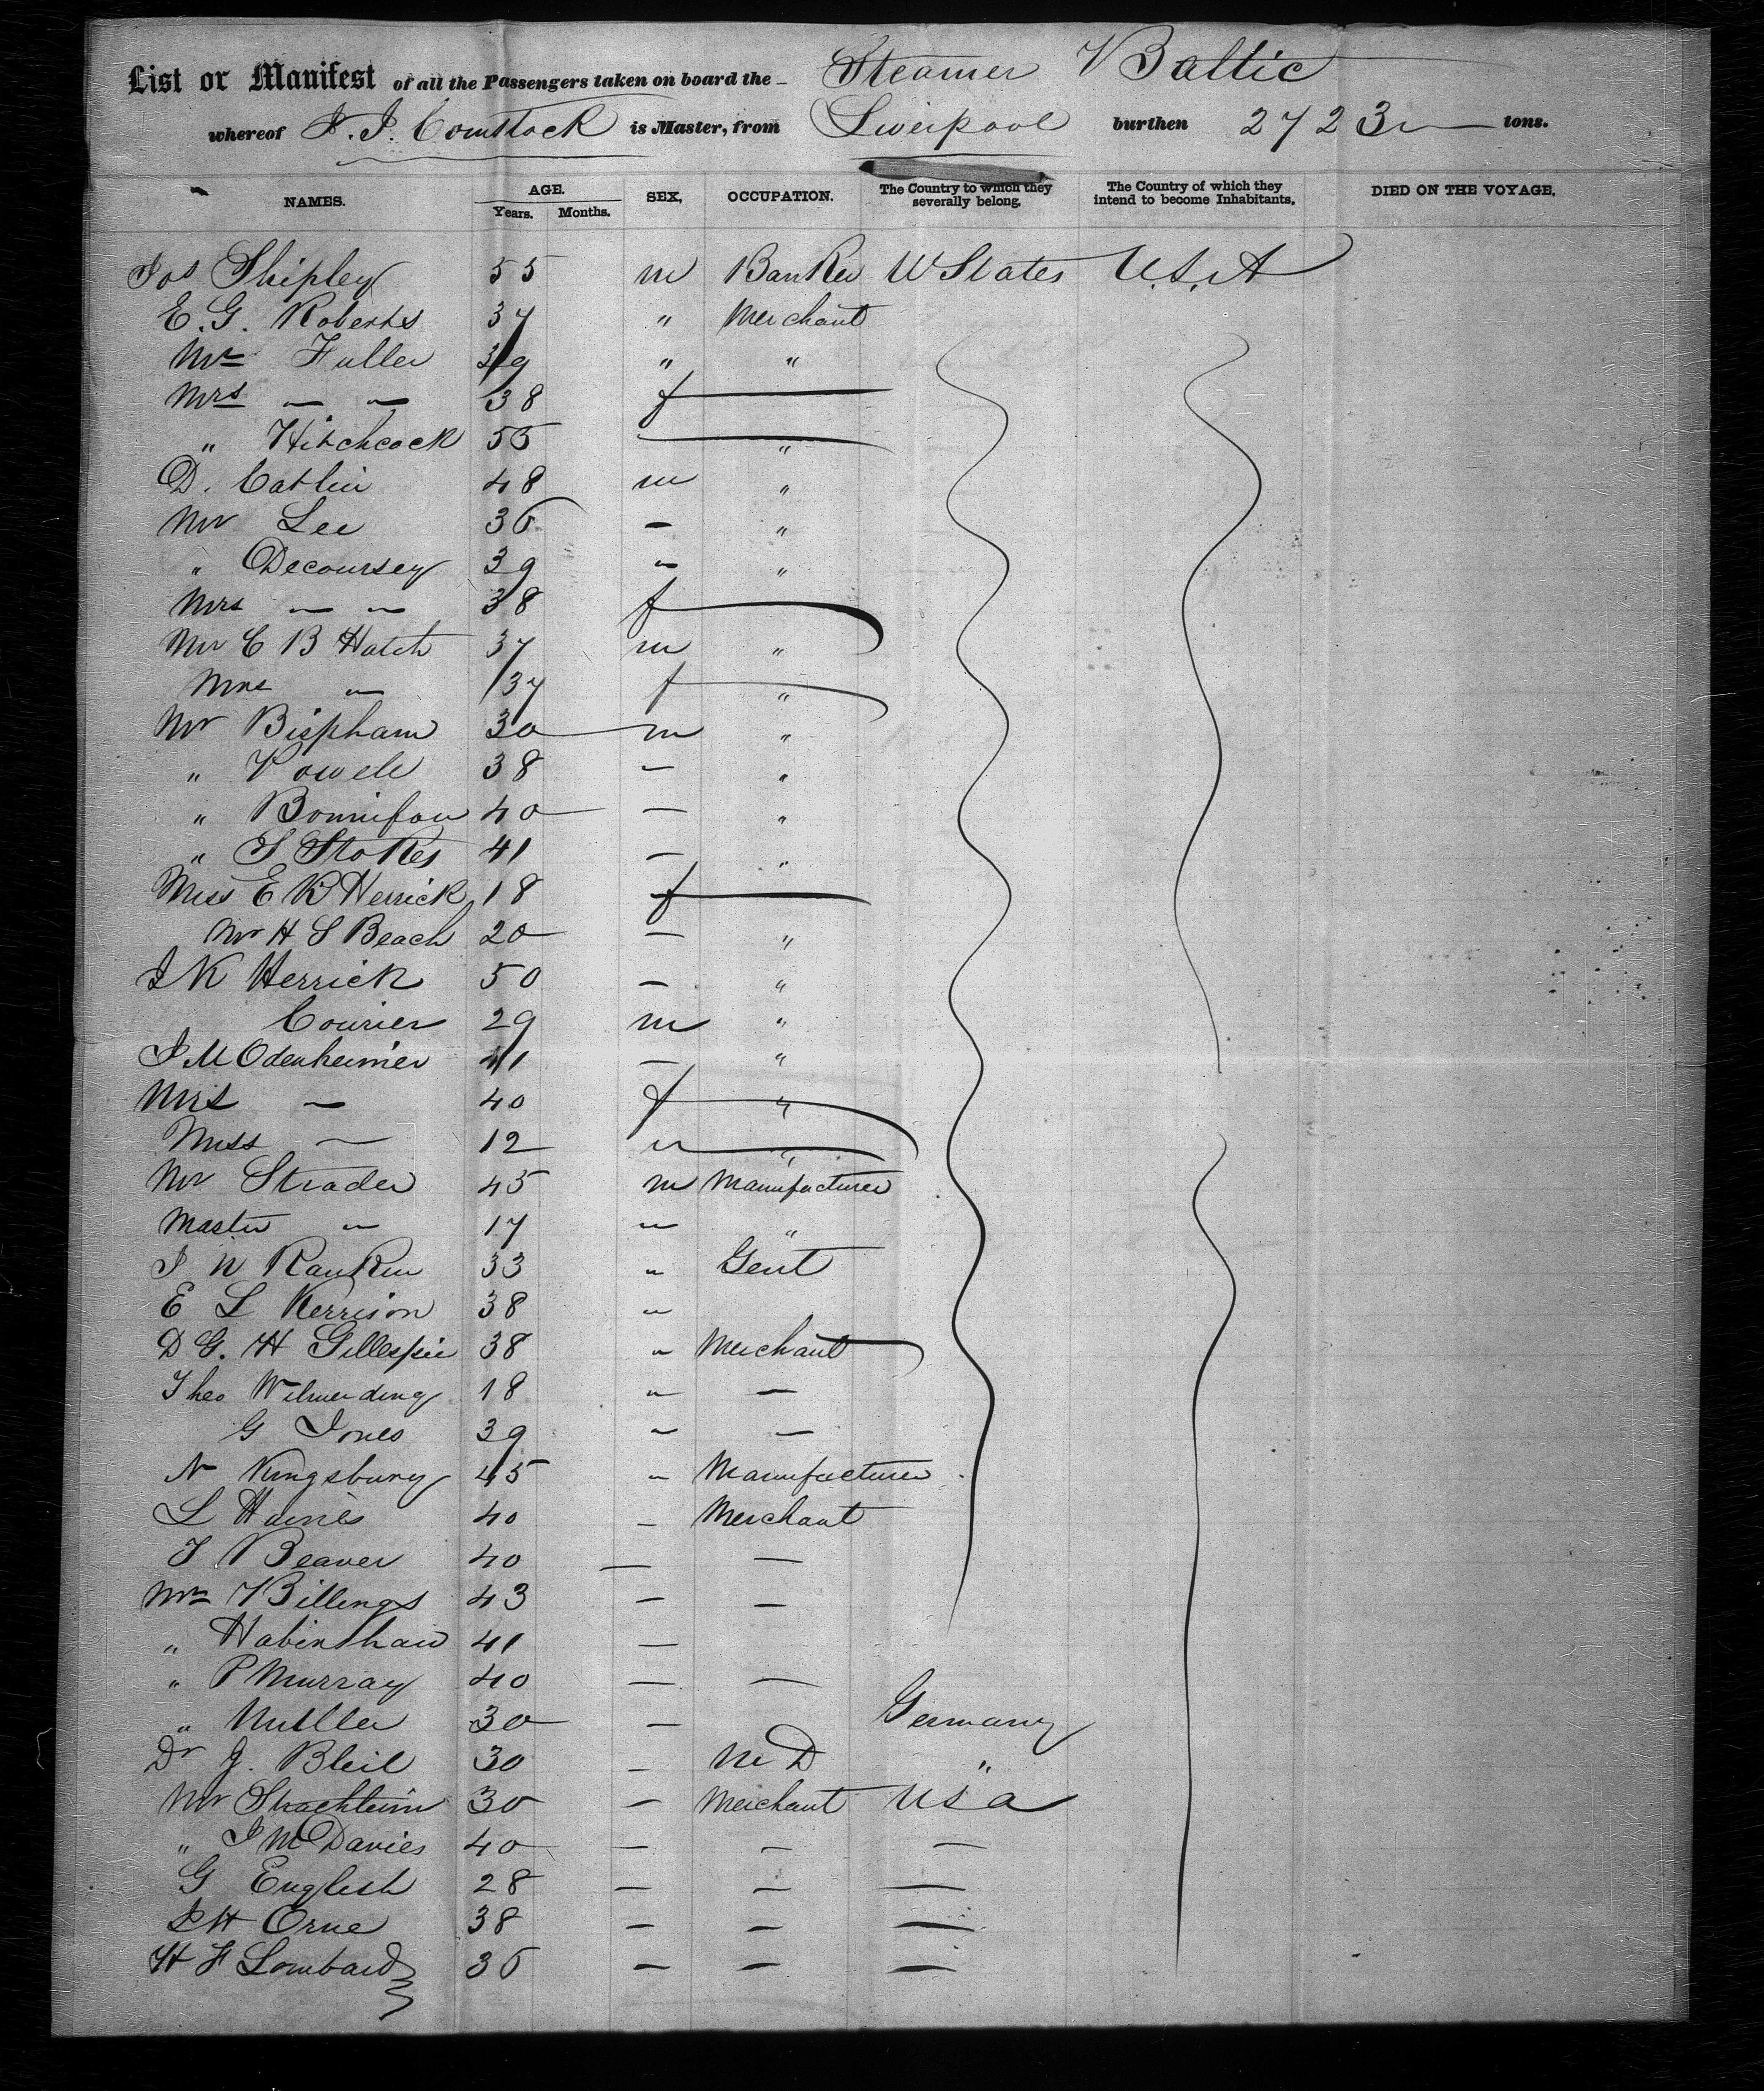 List or Manifest of all the Passengers taken on board the Steamer Baltic
whereof J. J. Comstock is Master, from Liverpool burthen 2723 tons.
NAMES. AGE. Years. Months. SEX, OCCUPATION. The Country to which they severally belong. The Country of which they intend to become Inhabitants. DIED ON THE VOYAGE.
Jos Shipley 55 m Banker U States U.S.A
E. G. Roberts 37 " Merchant
Mr Fuller 39 " "
Mrs — — 38 f —
" Hitchcock 55 — "
D. Catlin 48 m "
Mr Lee 36 — "
" Decoursey 39 " "
Mrs — — 38 f —
Mr C B Hatch 37 m "
Mrs " 37 f "
Mr Bispham 30 m "
" Powell 38 — "
" 40 — "
" S Stokes 41 — "
Miss E K Herrick 18 f —
Mr H S Beach 20 — "
J K Herrick 50 — "
Courier 29 m "
J M Odenheimer 41 — "
Mrs — 40 f "
Miss — 12 " "
Mr Strader 45 m Manufacturer
Master " 17 " "
J W Rankin 33 " Gent
E L Kerrison 38 "
D G. H Gillespie 38 " Merchant
Theo Wilmerding 18 " —
G Jones 39 " —
N Kingsbury 45 " Manufacturer
L Haines 40 — Merchant
T Beaver 40 — —
Mr Billings 43 — —
" Habinshaw 41 —
" P Murray 40 — —
" Muller 30 — Germany
Dr J. Bleil 30 — M D "
Mr 30 — Merchant U S a
" J M Davies 40 — — —
G English 28 — — —
J H Orne 38 — — —
H F Lombard 36 — — —